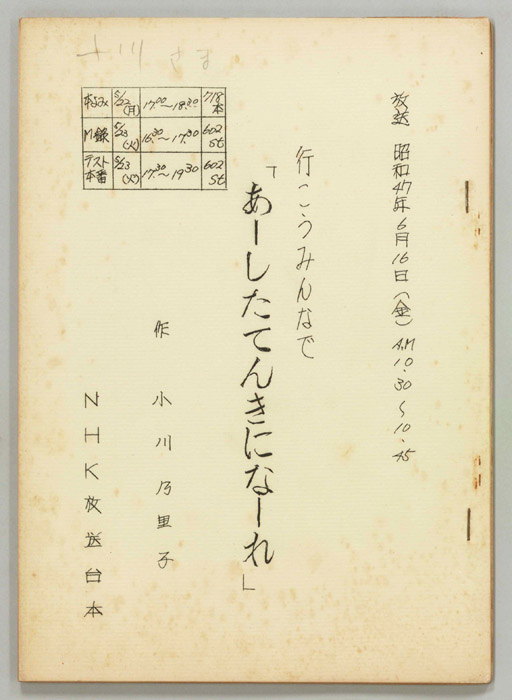 放送 昭和47年6月16日(金) AM 10.30〜10.45
行こうみんなで
「あーしたてんきになーれ」
作 小川乃里子
NHK放送台本
本よみ 5/22(月) 17.00〜18.30 718本
M録 5/23(火) 16.30〜17.30 602St
テスト本番 5/23(火) 17.30〜19.30 602St